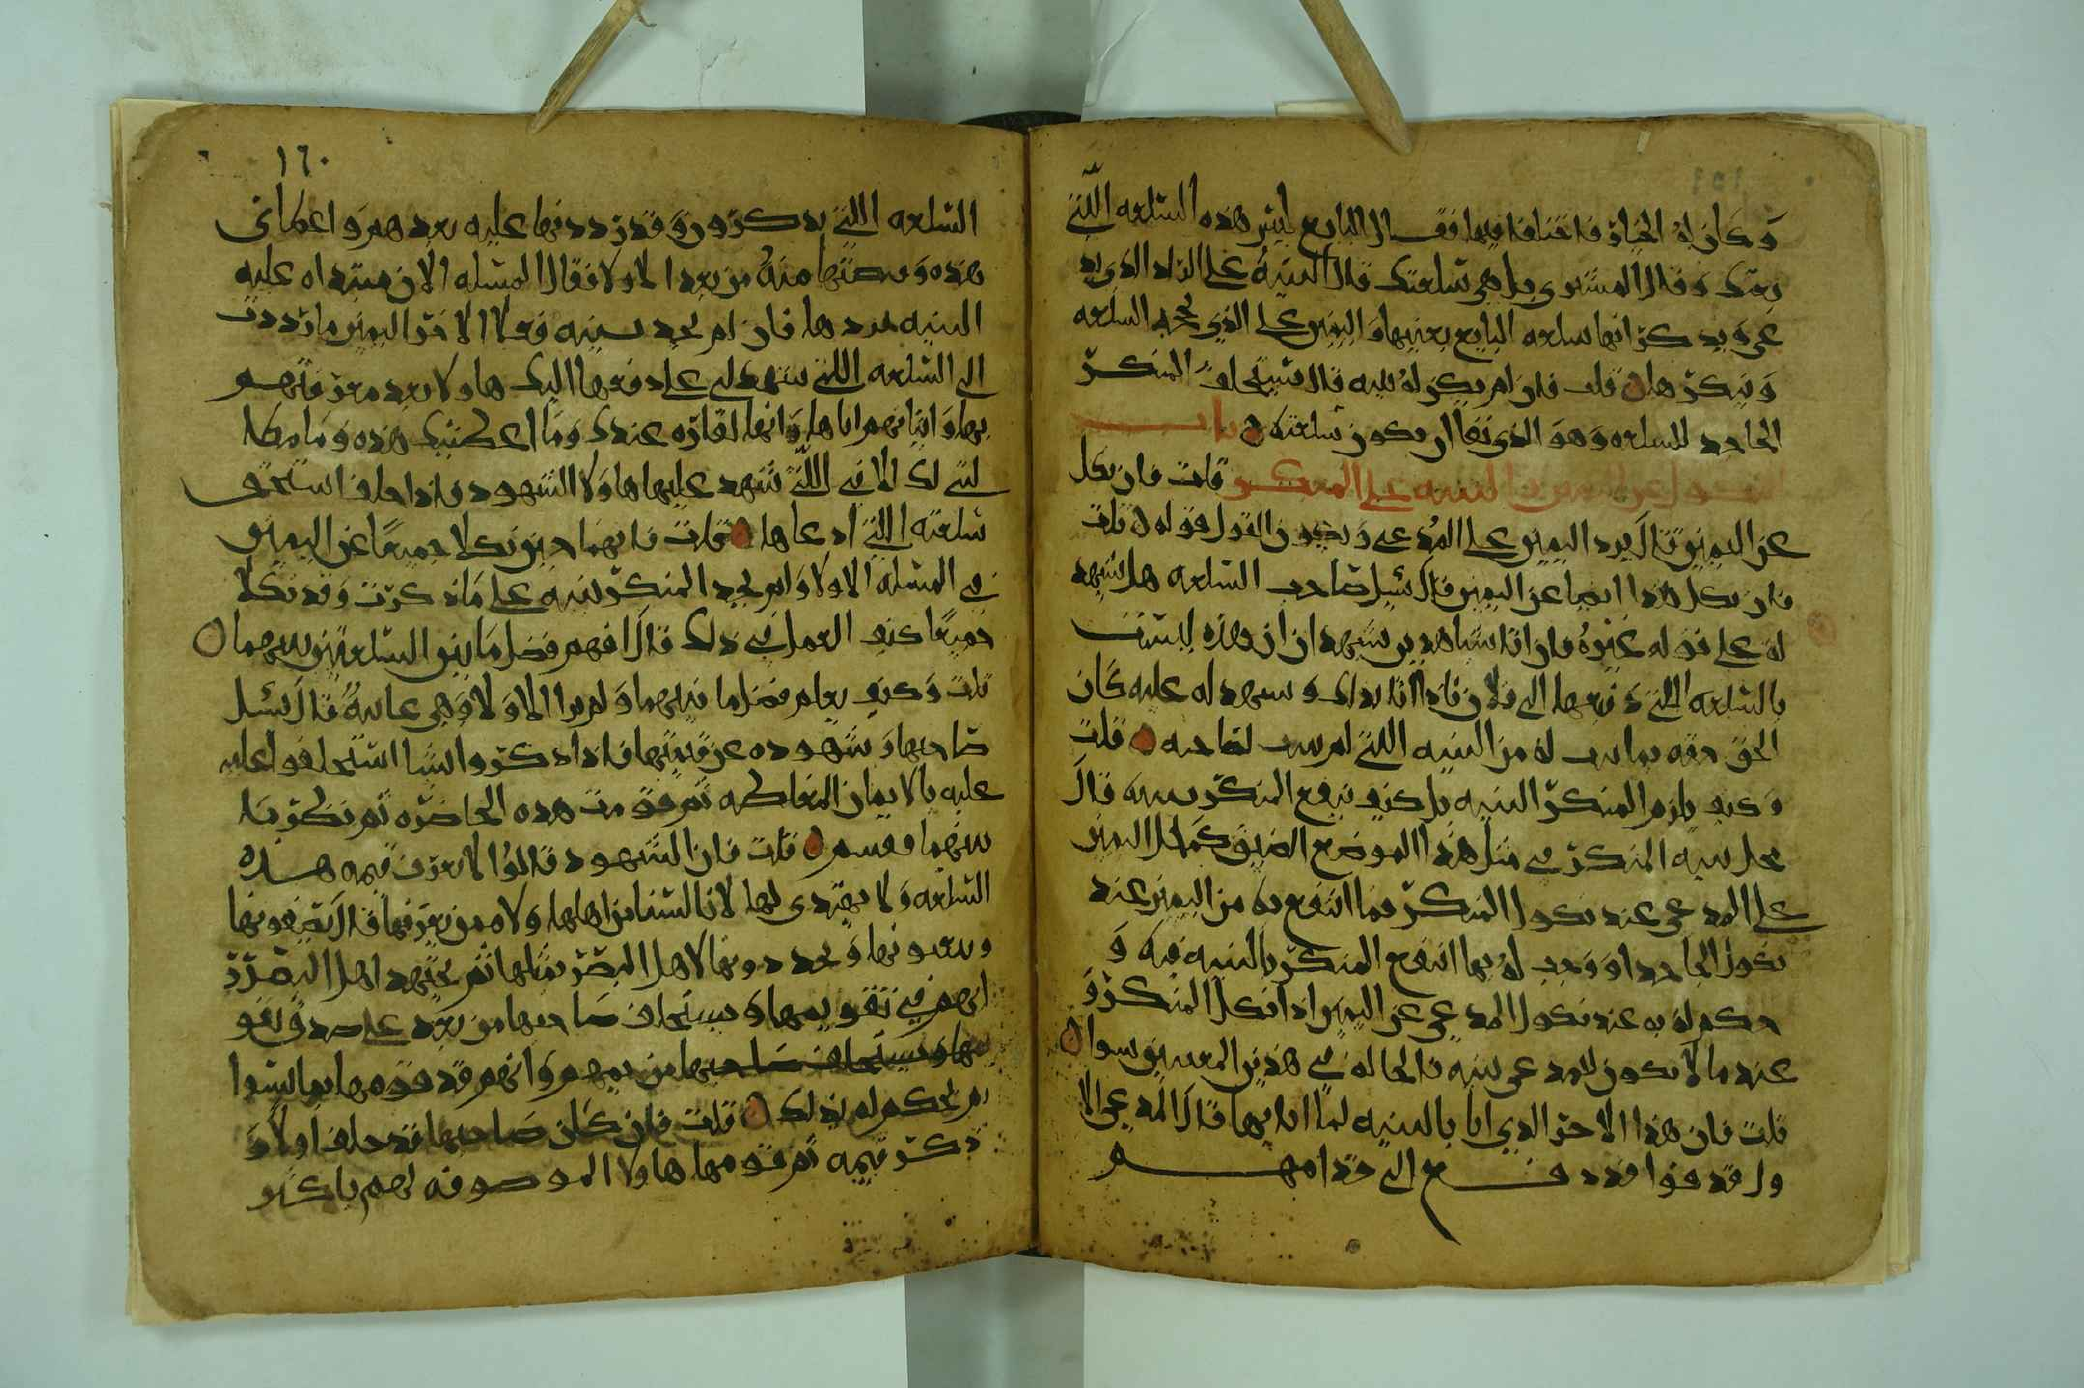 وكان له الخيار فاختلفا فيها فقال البايع ليس هذه السلعه اللتي
بعتك وقال المشتري بل هي سلعتك قال البينه على الراد الذي يد
عي ويذكر انها سلعه البايع بعينها واليمين على الذي يجحد السلعه
وينكرها قلت فان لم يكن له بينه قال يستحلف المنكر
الجاحد للسلعه وهو الذي نفا ان يكون سلعته باب
النكول عن اليمين البينه على المنكر قلت فان نكل
عن اليمين قال يرد اليمين على المدعي ويكون القول قوله قلت
فان نكل هذا ايضا عن اليمين قال يسل صاحب السلعه هل يشهد
له على قوله غيره فان اتا بشاهدين يشهدان ان هذه ليست
بالسلعه اللتي دفعها الى فلان فاذا اتا بذلك وشهد له عليه كان
الحق حقه بما ثبت له من البينه اللتي لم تثبت لصاحبه قلت
وكيف يلزم المنكر البينه بل كيف ينفع المنكر بينه قال
محل بينه المنكر في مثل هذا الموضع الضيق كمحل اليمين
على المدعي عند نكول المنكر فما انتفع به من اليمين عند
نكول الجاحد او وجب له بها انتفع المنكر بالبينه فيه و
حكم له به عند نكول المدعي عن اليمين اذا نكل المنكر و
عند ما لا يكون للمدعي بينه فالحاله في هذين المعنيين سوا
قلت فان هذا الاخر الذي اتا بالبينه لما اتا بها قال المدعي الا
ول قد فوا قد دفع الي حقا منهم
١٦٠
السلعه اللتي يذكرون وقد رددتها عليه بعدهم واعطاني
هذه وقبضتها منه من بعد اولا فقال المسله الان مبتداه عليه
البينه بردها فان لم يجد بينه فعلى الاخر اليمين ما رددت
الي السلعه اللتي شهد لي على دفعها اليك هاولا بعد معرفتهم
بها واثباتهم اياها وانها لقاره عندك وما اعطيتك هذه وما مطل
لتي لك الا في اللتي شهد عليها هاولا الشهود فاذا حلف استحق
سلعته اللتي ادعاها قلت فانهما حين نكلا جميعا عن اليمين
في المسله الاولا ولم يجد المنكر بينه على ما ذكرت وقد نكلا
جميعا كيف العمل في ذلك قال افهم فضل ما بين السلعتين بينهما
قلت وكيف يعلم فضل ما بينهما ولم يرا الاولا وهي غايبه قال يسل
صاحبها وشهوده عن قيمتها فاذا ذكروا شيا استحلفوا عليه
عليه بالايمان المغلظه ثم قومت هذه الحاضره ثم نظر ما
بينهما فقسم قلت فان الشهود قالوا لا نعرف قيمه هذه
السلعه ولا نهتدي لها لانا لسنا من اهلها ولا ممن يعرفها قال يصفونها
وينعتونها ويحددونها لاهل البصر بمثلها ثم يجتهد اهل البصر
انهم في تقويمها ويستحلف صاحبها من بعد على صدق تقو
يمها ويستحلف صاحبها من بينهم وانهم قد قوموها بما يسوا
ثم يحكم له بذلك قلت فان كان صاحبها قد حلف اولا و
ذكر قيمه ثم قومها هاولا الموصوفه لهم باكثر